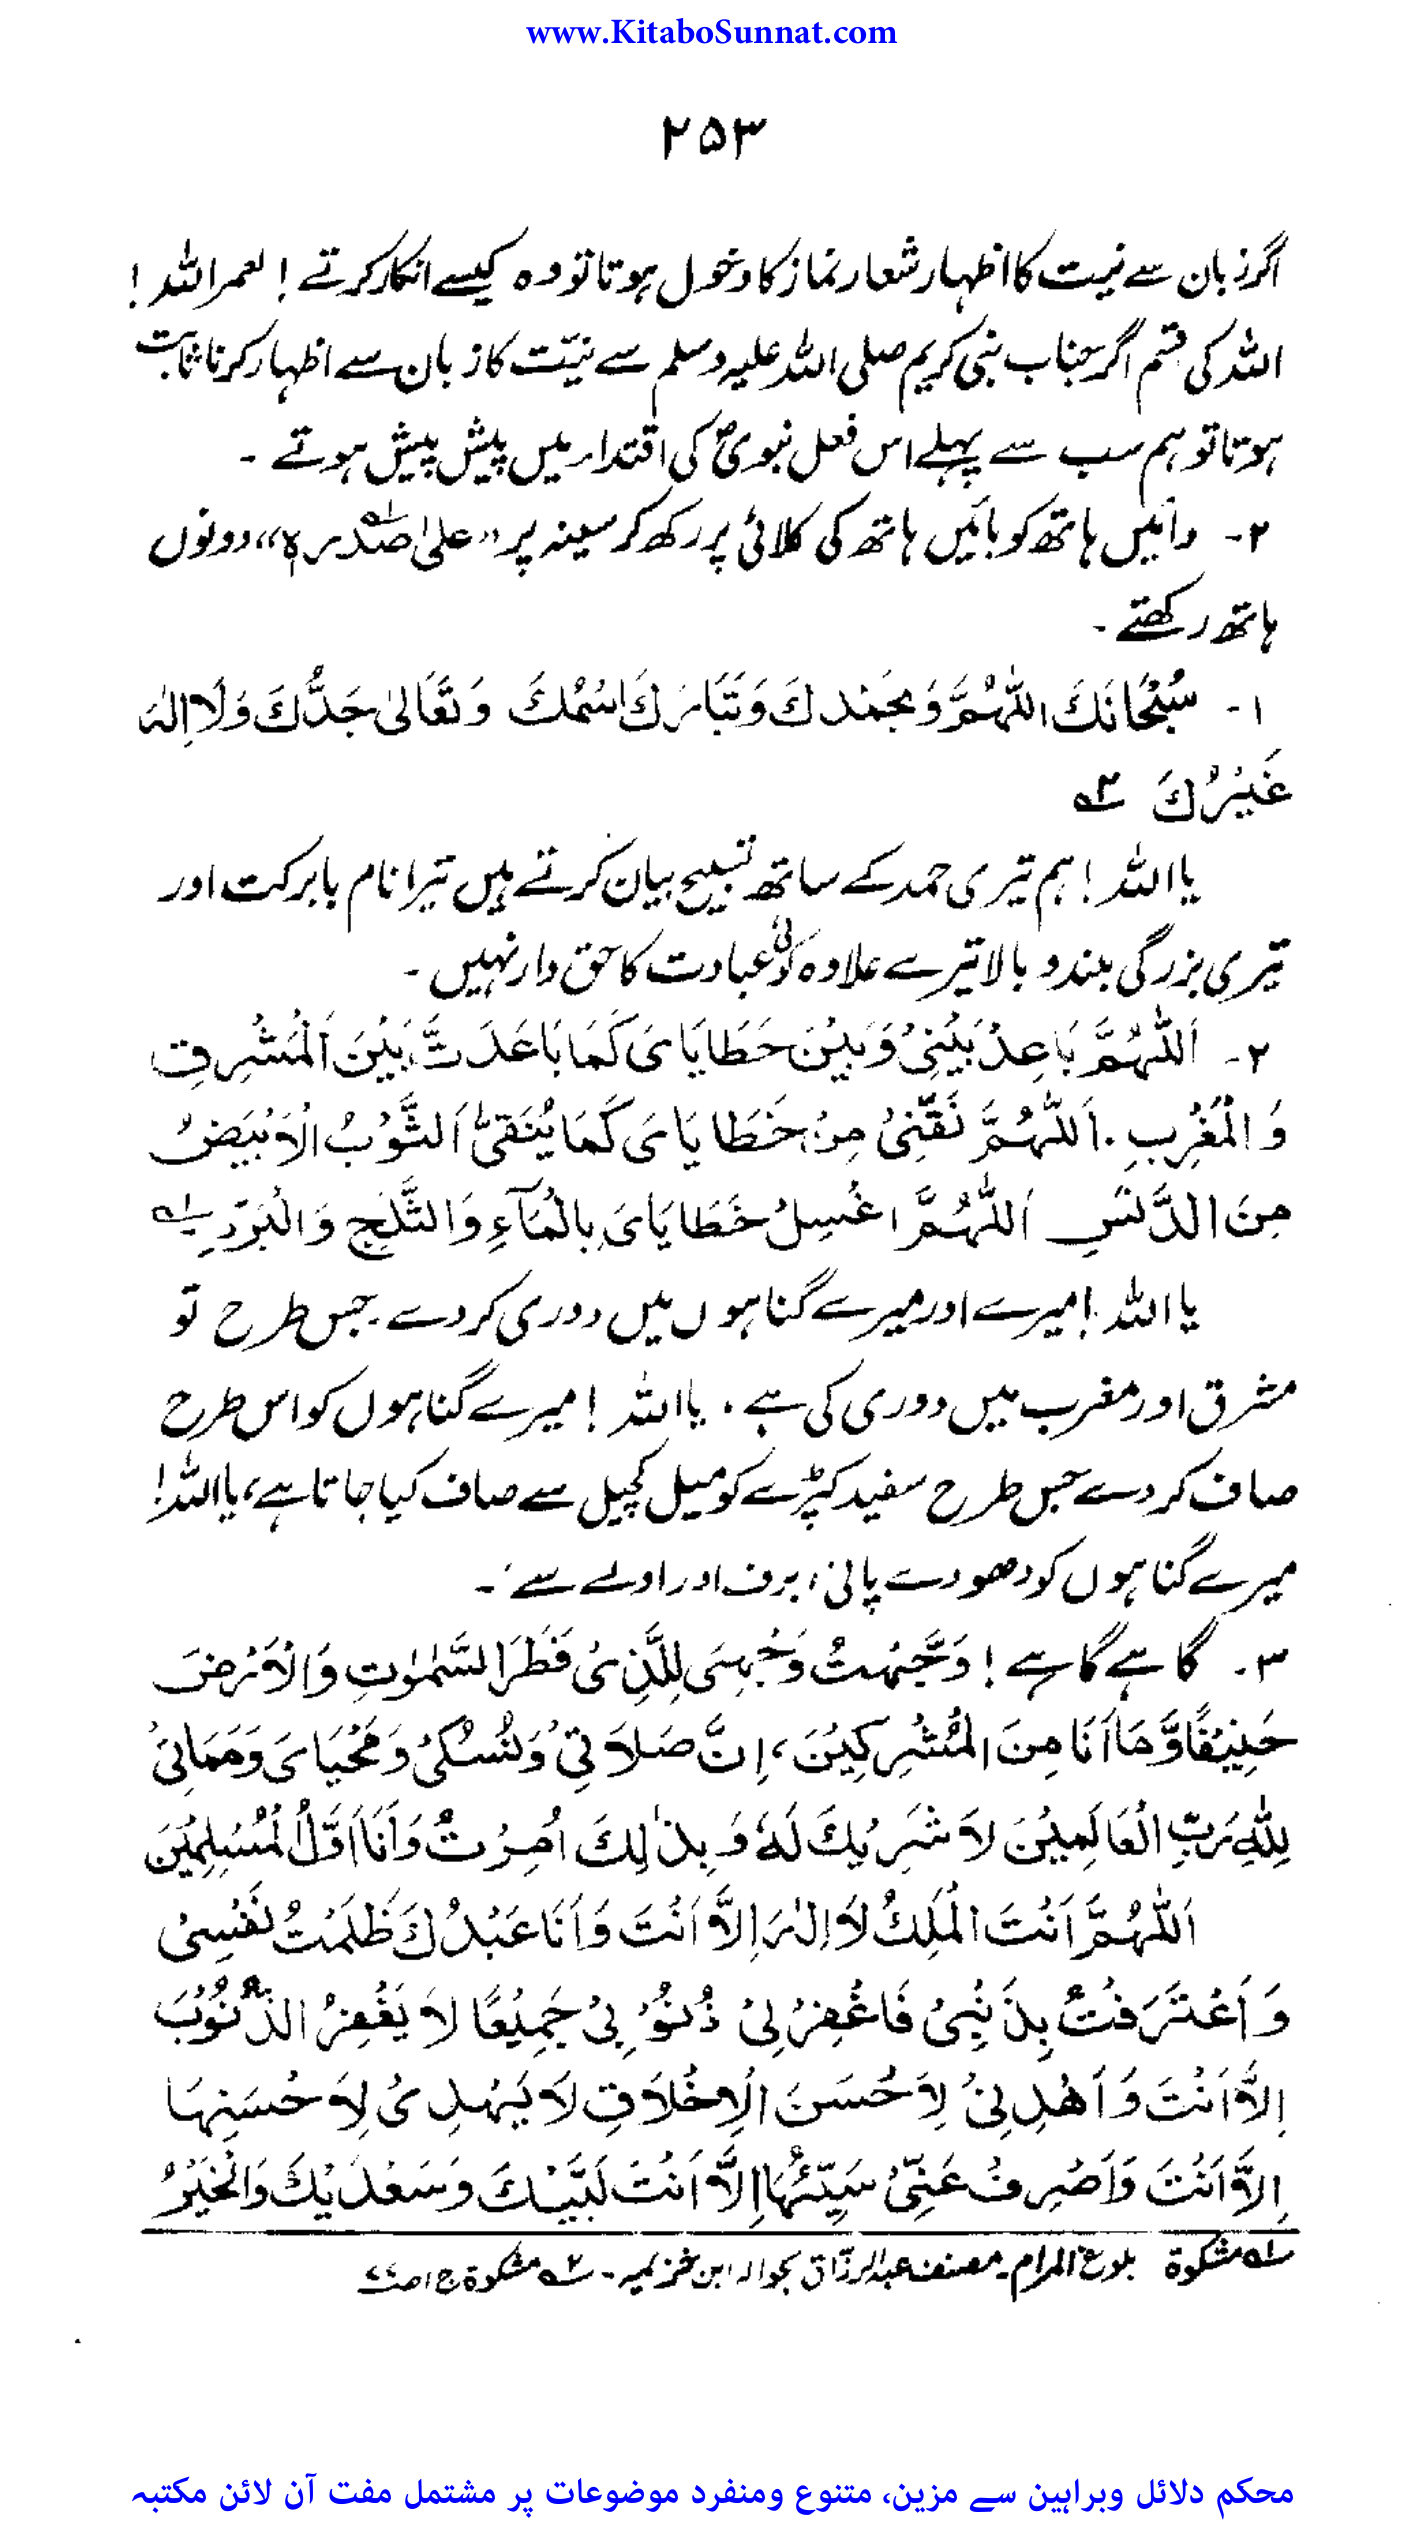 www.KitaboSunnat.com
۲۵۳
اگر زبان سے نیت کا اظہار شعار نماز کا دخول ہوتا تو وہ کیسے انکار کرتے ! لعمر اللہ !
اللہ کی قسم اگر جناب نبی کریم صلی اللہ علیہ وسلم سے نیّت کا زبان سے اظہار کرنا ثابت
ہوتا تو ہم سب سے پہلے اس فعل نبویؐ کی اقتدار میں پیش پیش ہوتے ۔
۲- دائیں ہاتھ کو بائیں ہاتھ کی کلائی پر رکھ کر سینہ پر ”علیٰ صَدرہٖ“ ؂۱ دونوں
ہاتھ رکھتے ۔
۱- سُبْحَانَكَ اللّٰهُمَّ وَبِحَمْدِكَ وَتَبَارَكَ اسْمُكَ وَتَعَالٰى جَدُّكَ وَلَا اِلٰهَ
غَيْرُكَ ؂۲
یا اللہ ! ہم تیری حمد کے ساتھ تسبیح بیان کرتے ہیں تیرا نام بابرکت اور
تیری بزرگی بلند و بالا تیرے علاوہ کوئی عبادت کا حق دار نہیں ۔
۲- اَللّٰهُمَّ بَاعِدْ بَيْنِيْ وَبَيْنَ خَطَايَاىَ كَمَا بَاعَدَتَّ بَيْنَ اَلْمَشْرِقِ
وَالْمَغْرِبِ . اَللّٰهُمَّ نَقِّنِيْ مِنْ خَطَايَاىَ كَمَا يُنَقىَّ اَلثَّوْبُ الْاَبْيَضُ
مِنَ الدَّنَسِ اَللّٰهُمَّ اغْسِلْ خَطَايَاىَ بِالْمَآءِ وَالثَّلَجِ وَالْبَرَدِ ؂۱
یا اللہ ! میرے اور میرے گناہوں میں دوری کر دے ۔ جس طرح تو
مشرق اور مغرب میں دوری کی ہے ، یا اللہ ! میرے گناہوں کو اس طرح
صاف کر دے جس طرح سفید کپڑے کو میل کچیل سے صاف کیا جاتا ہے ، یا اللہ !
میرے گناہوں کو دھو دے پانی ، برف اور اولے سے ۔
۳- گاہے گاہے ! وَجَّهْتُ وَجْهِىَ لِلَّذِىْ فَطَرَ السَّمٰوٰتِ وَالْاَرْضَ
حَنِيْفًا وَّمَا اَنَا مِنَ الْمُشْرِكِيْنَ ، اِنَّ صَلَاتِيْ وَنُسُكِىْ وَمَحْيَاىَ وَمَمَاتِىْ
لِلّٰهِ رَبِّ الْعَالَمِيْنَ لاَ شَرِيْكَ لَهٗ وَبِذٰلِكَ اُمِرْتُ وَاَنَا اَوَّلُ الْمُسْلِمِيْنَ
اَللّٰهُمَّ اَنْتَ الْمَلِكُ لاَ اِلٰهَ اِلاَّ اَنْتَ وَاَنَا عَبْدُكَ ظَلَمْتُ نَفْسِىْ
وَاَعْتَرَفْتُ بِذَنْبِىْ فَاغْفِرْ لِىْ ذُنُوْبِىْ جَمِيْعًا لاَ يَغْفِرُ الذُّنُوْبَ
اِلاَّ اَنْتَ وَاَهْدِنِىْ لِاَحْسَنَ الْاِخْلَاقِ لاَ يَهْدِىْ لِاَحْسَنِهَا
اِلاَّ اَنْتَ وَاَصْرِفْ عَنِّىْ سَيِّئَهَا اِلاَّ اَنْتَ لَبَّيْكَ وَسَعْدَيْكَ وَالْخَيْرُ
؂۱ مشکوۃ بلوغ المرام ۔ مصنف عبدالرزّاق بحوالہ ابن خزیمہ ۔ ؂۲ مشکوۃ ج ۱ ص ۷۷
محکم دلائل وبراہین سے مزین، متنوع ومنفرد موضوعات پر مشتمل مفت آن لائن مکتبہ